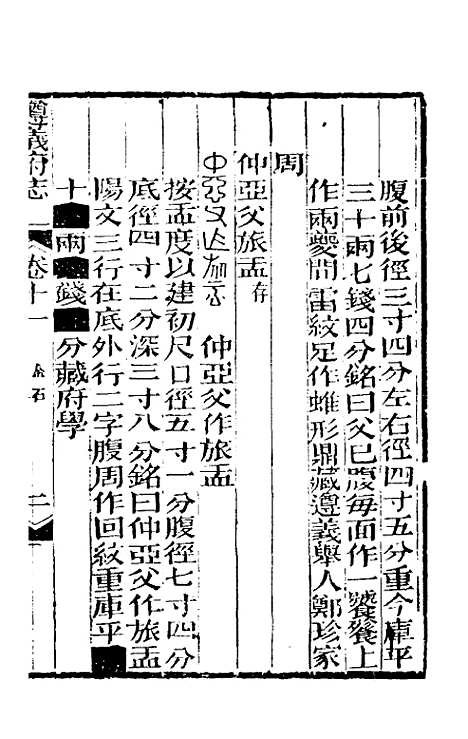 腹前後徑三寸四分左右徑四寸五分重今庫平
三十兩七錢四分銘曰父巳腹每面作一饕餮上
作兩夔間雷紋足作蜼形鼎藏遵義舉人鄭珍家
周
仲亞父旅盂存
仲亞父作旅盂
按盂度以建初尺口徑五寸一分腹徑七寸四分
底徑四寸二分深三寸八分銘曰仲亞父作旅盂
陽文三行在底外行二字腹周作回紋重庫平
十兩錢分藏府學
遵義府志 卷十一 金石 二